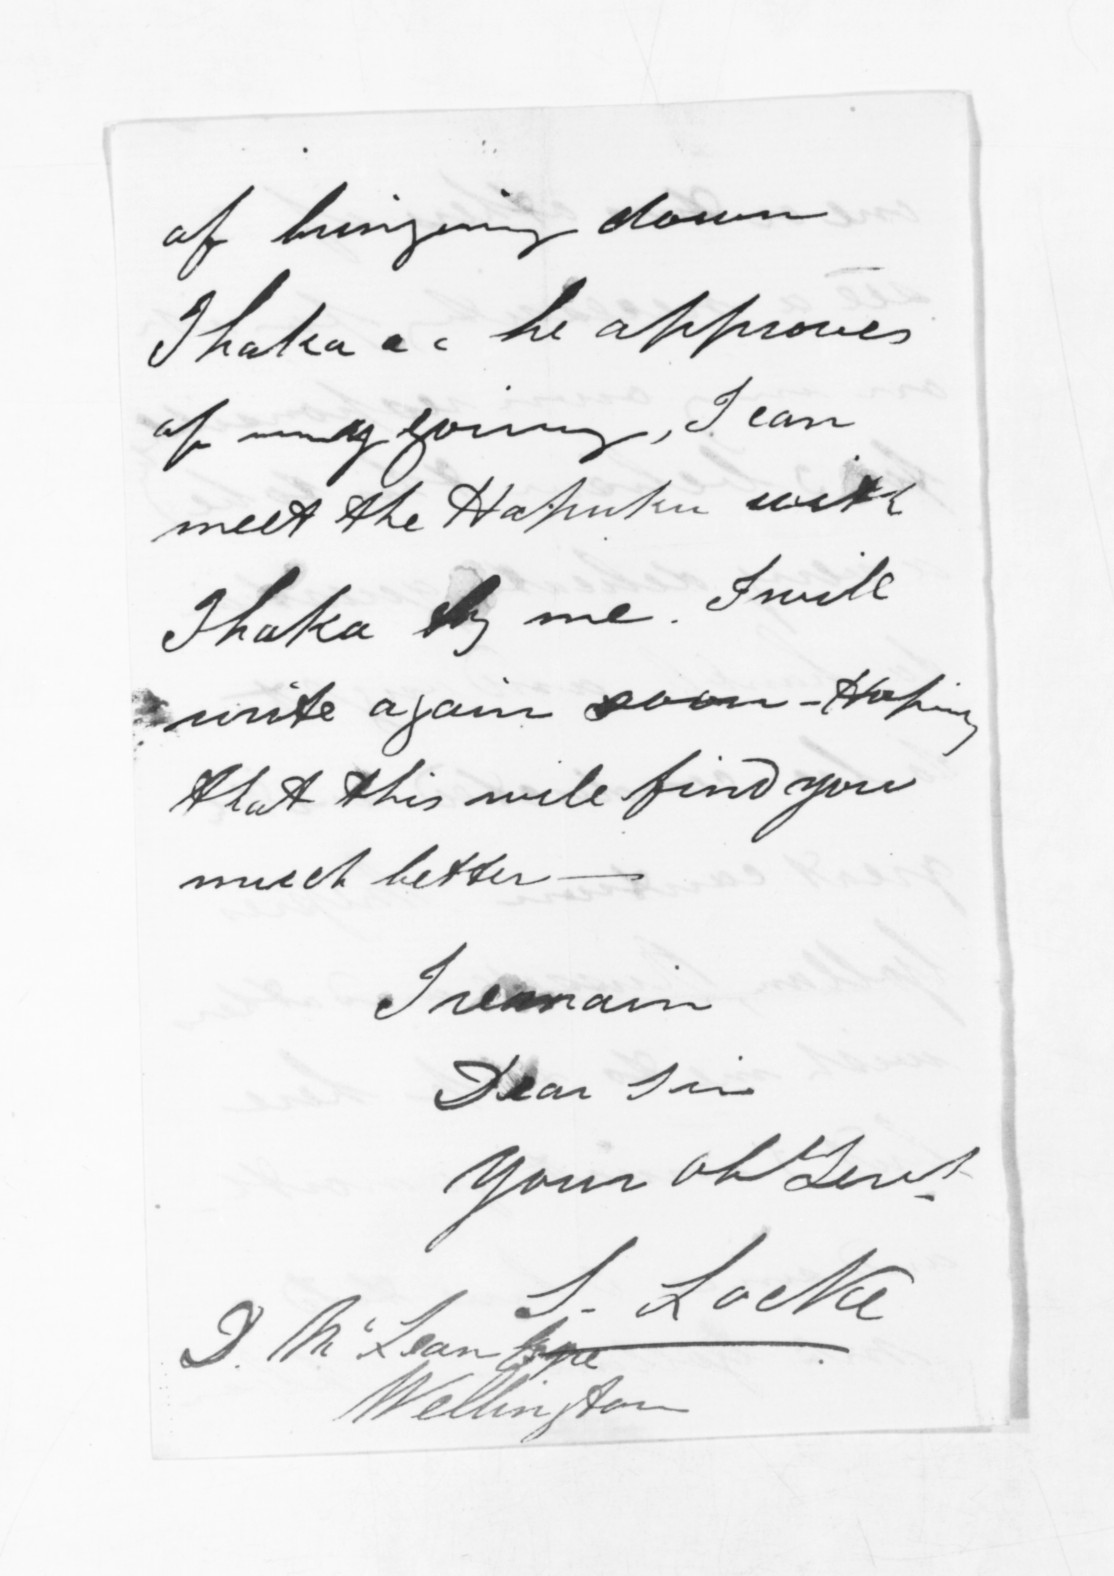 of bringing down
Ihaka &c he approves
of my going, I can
meet the Hapuku with
Ihaka by me. I will
write again soon - Hoping
that this will find you
much better —
I remain
Dear Sir
Your obt Servt
S. Locke
D. McLean Esqre
Wellington